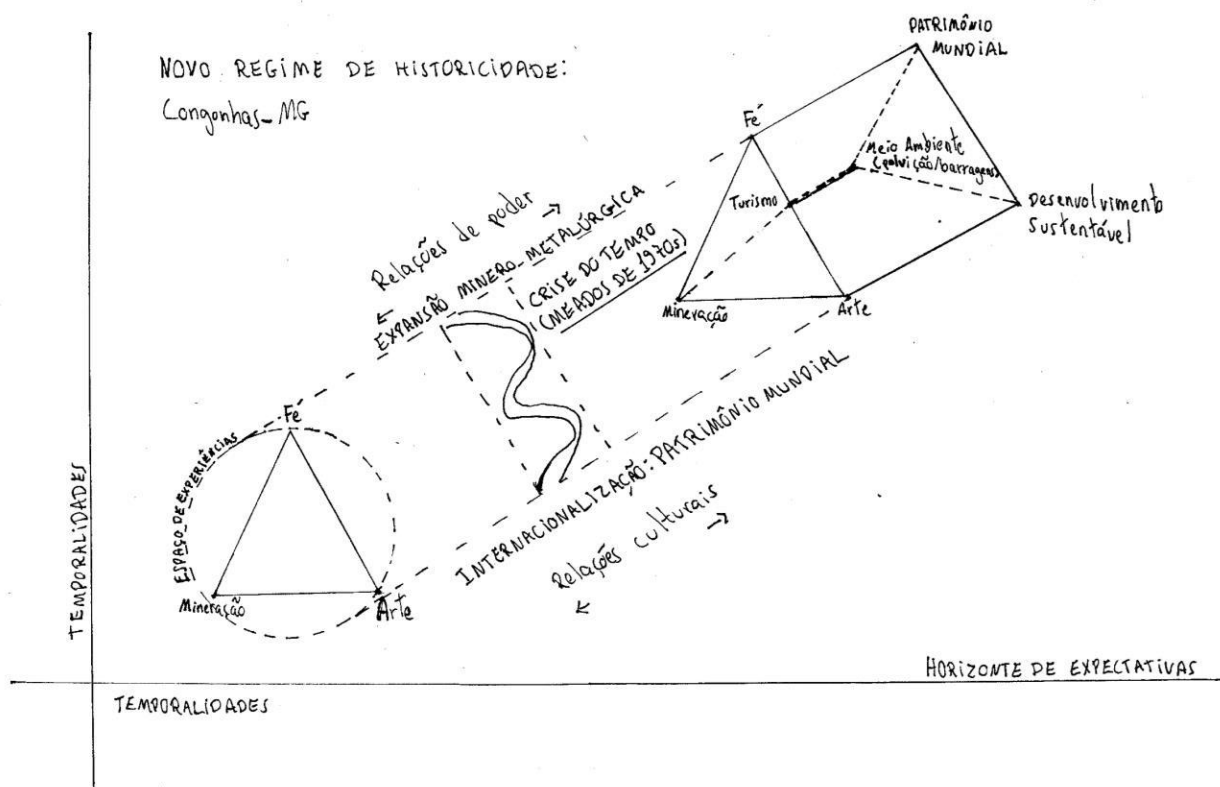 NOVO REGIME DE HISTORICIDADE:
Congonhas_MG
PATRIMÔNIO
MUNDIAL
Fé
Meio Ambiente
(poluição/barragens)
Turismo
Desenvolvimento
Sustentável
Mineração
Arte
Relações de poder
EXPANSÃO MINERO_METALÚRGICA
CRISE DO TEMPO
(MEADOS DE 1970s)
INTERNACIONALIZAÇÃO: PATRIMÔNIO MUNDIAL
Relações culturais
Fé
ESPAÇO_DE_EXPERIÊNCIAS
Mineração
Arte
TEMPORALIDADES
HORIZONTE DE EXPECTATIVAS
TEMPORALIDADES